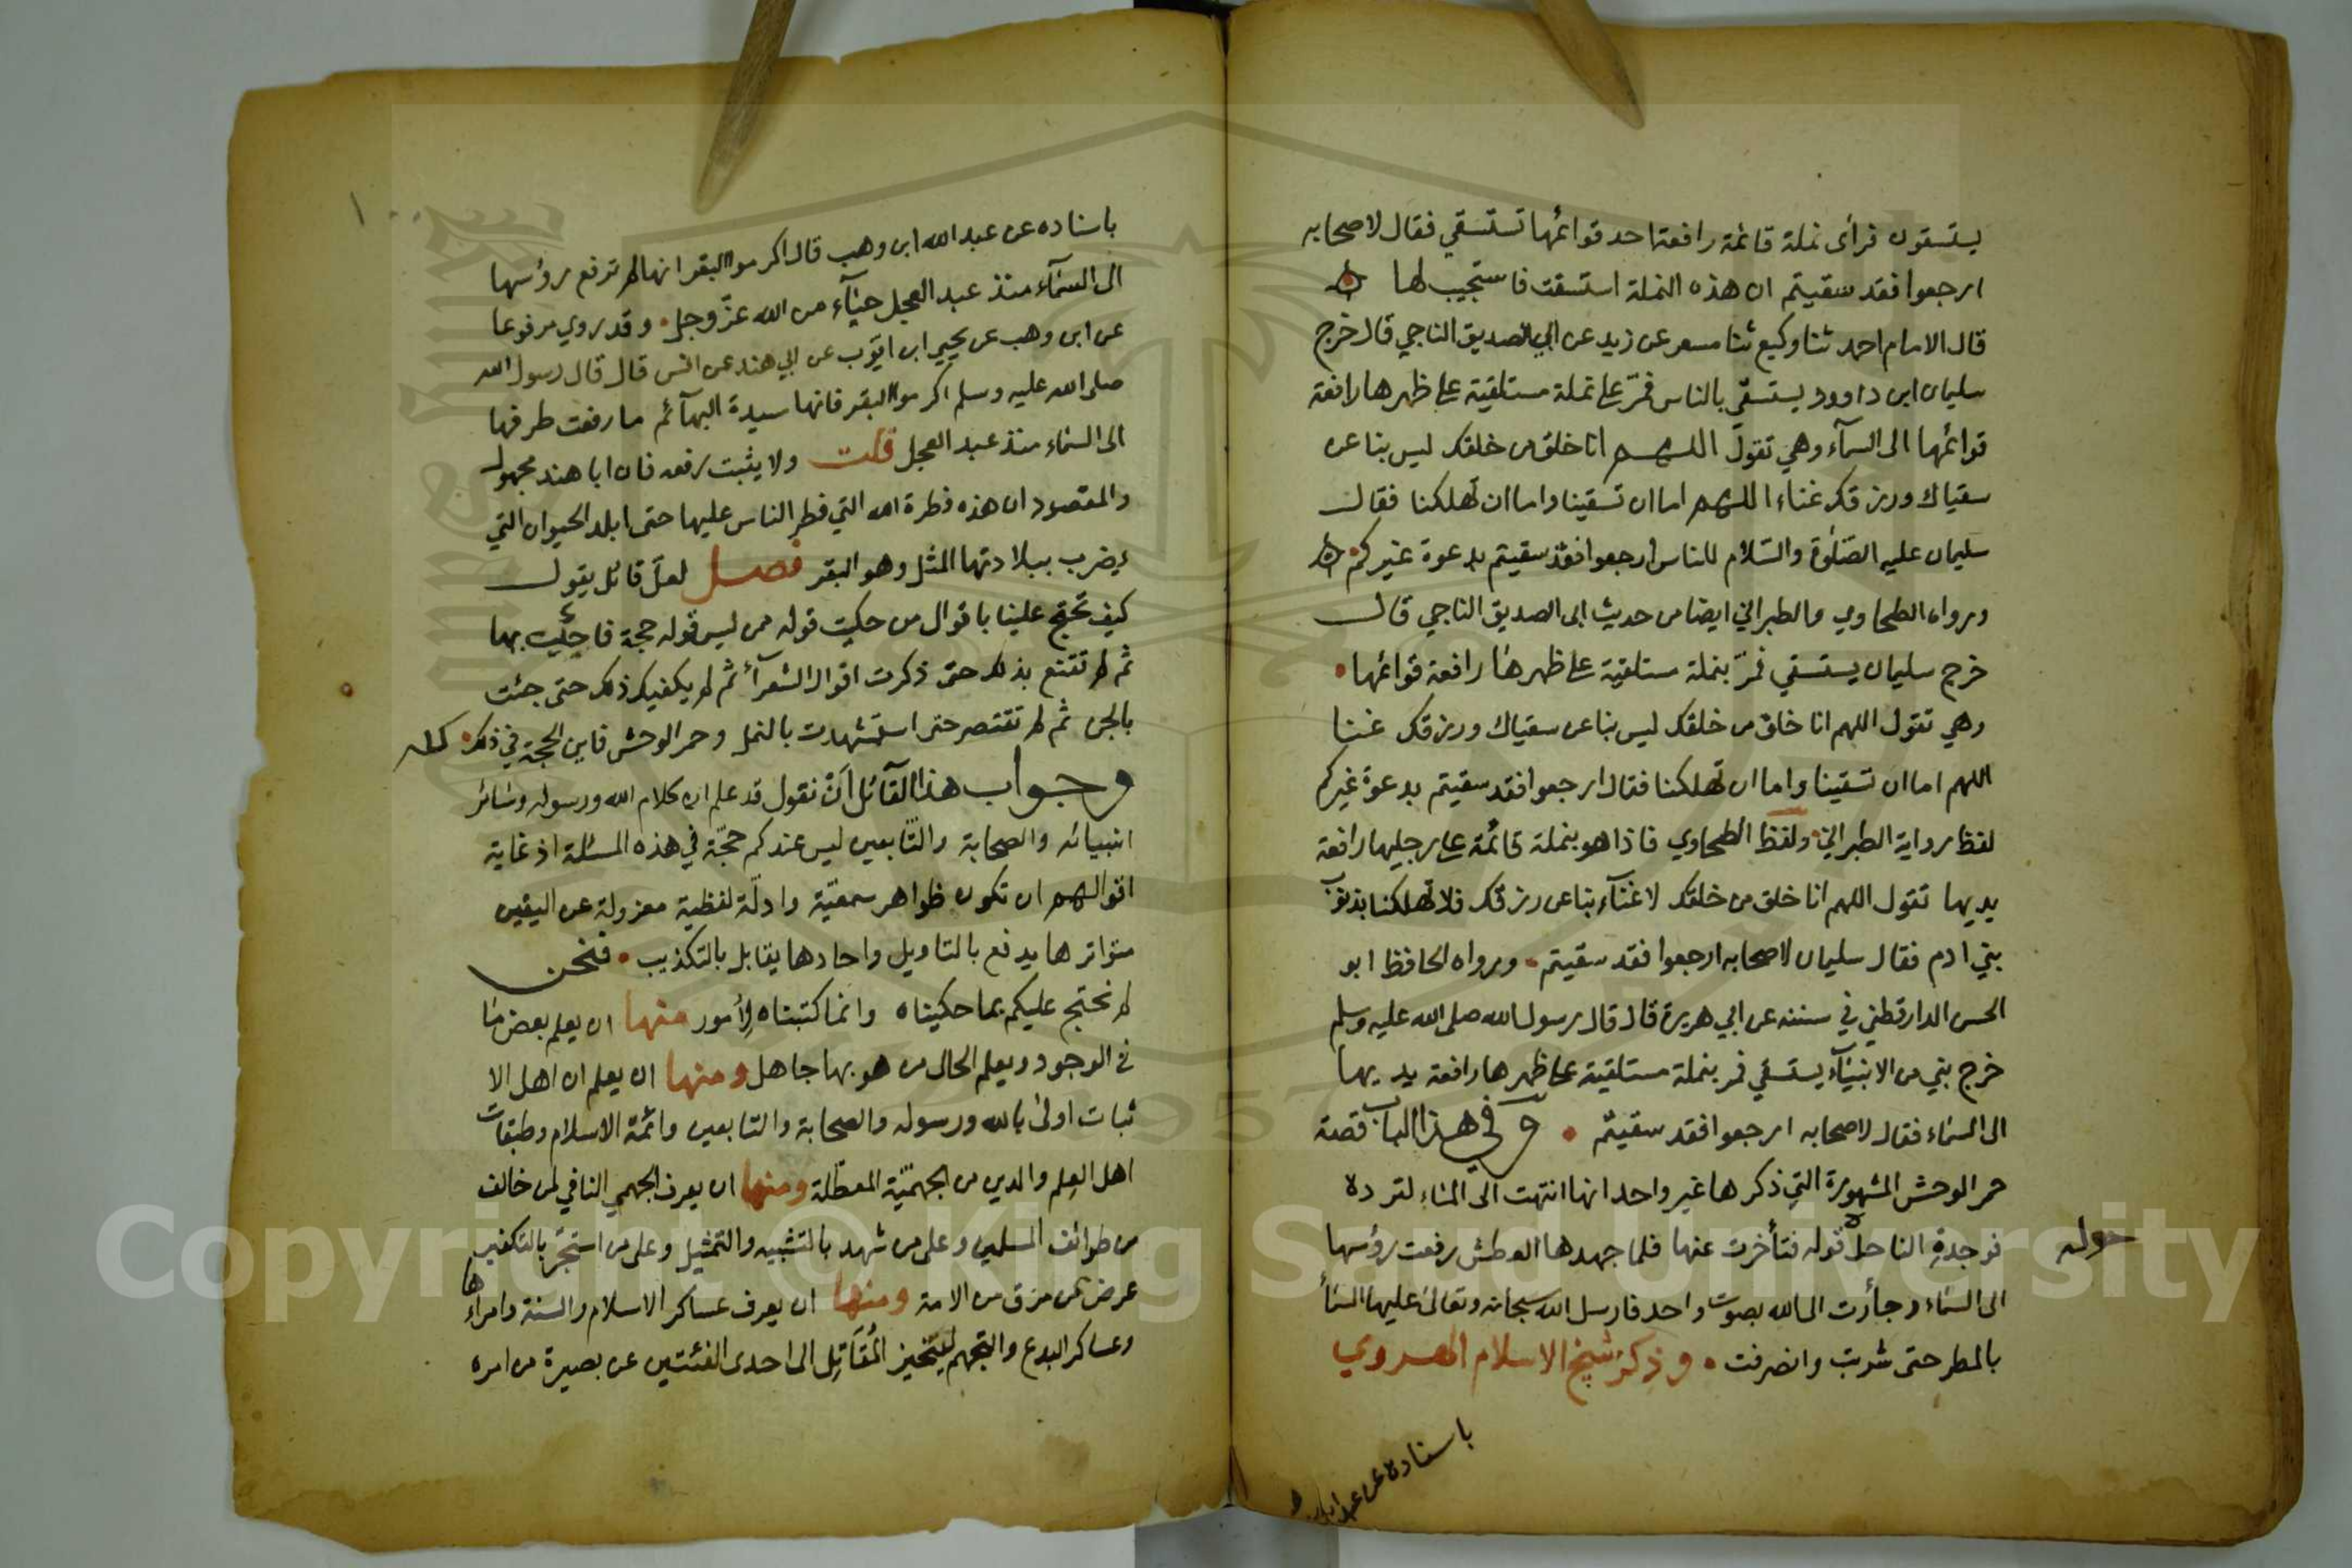 يستسقون فرأى نملة قائمة رافعة احد قوائمها تستسقي فقال لاصحابه
ارجعوا فقد سقيتم ان هذه النملة استسقت فاستجيب لها
قال الامام احمد ثنا وكيع ثنا مسعر عن زيد عن ابي الصديق الناجي قال خرج
سليمان ابن داوود يستسقي بالناس فمرّ على نملة مستلقية على ظهرها رافعة
قوائمها الى السمآء وهي تقول اللهم انا خلق من خلقك ليس بنا عن
سقياك ورزقك غناء اللهم اما ان تسقينا واما ان تهلكنا فقال
سليمان عليه الصلوة والسلام للناس ارجعوا فقد سقيتم بدعوة غيركم
ورواه الطحاوي والطبراني ايضا من حديث ابى الصديق الناجي قال
خرج سليمان يستسقي فمرّ بنملة مستلقية على ظهرها رافعة قوائمها
وهي تقول اللهم انا خلق من خلقك ليس بنا عن سقياك ورزقك غنا
اللهم اما ان تسقينا واما ان تهلكنا فقال ارجعوا فقد سقيتم بدعوة غيركم
لفظ رواية الطبراني ولفظ الطحاوي فاذا هو بنملة قائمة على رجليها رافعة
يديها تقول اللهم انا خلق من خلقك لا غنآء بنا عن رزقك فلا تهلكنا بذنوب
بني ادم فقال سليمان لاصحابه ارجعوا فقد سقيتم ورواه الحافظ ابو
الحسن الدارقطني في سننه عن ابي هريرة قال قال رسول الله صلى الله عليه وسلم
خرج نبي من الانبيآء يستسقي فمر بنملة مستلقية على ظهرها رافعة يديها
الى السماء فقال لاصحابه ارجعوا فقد سقيتم وفي هذا الباب قصة
حمر الوحش المشهورة التي ذكرها غير واحد انها انتهت الى الماء لترده
فوجدة الناحل قوله فتأخرت عنها فلما جهدها العطش رفعت رؤسها
حوله
الى السماء وجأرت الى الله بصوت واحد فارسل الله سبحانه وتعالى عليها السماء
بالمطر حتى شربت وانصرفت وذكر شيخ الاسلام الهروي
باسناده عن عبد الله
١٠
باسناده عن عبد الله ابن وهب قال اكرموا البقر انها لم ترفع رؤسها
الى السمآء منذ عبد العجل حيآء من الله عزّ وجل وقد روي مرفوعا
عن ابن وهب عن يحيى ابن ايوّب عن ابي هند عن انس قال قال رسول الله
صلى الله عليه وسلم اكرموا البقر فانها سيدة البهآئم ما رفعت طرفها
الى السماء منذ عبد العجل قلت ولا يثبت رفعه فان ابا هند مجهول
والمقصود ان هذه فطرة الله التي فطر الناس عليها حتى ابلد الحيوان التي
يضرب ببلادتها المثل وهو البقر فصل لعلّ قائل يقول
كيف تحتج علينا باقوال من حكيت قوله ممن ليس قوله حجة فاجئت بها
ثم لم تقنع بذلك حتى ذكرت اقوال الشعرآء ثم لم يكفيك ذلك حتى جئت
بالجن ثم لم تقتصر حتى استشهدت بالنمل وحمر الوحش فاين الحجة في ذلك كله
وجواب هذا القآئل ان نقول قد علم ان كلام الله ورسوله وسائر
انبيائه والصحابة والتّابعين ليس عندكم حجّة في هذه المسئلة اذ غاية
اقوالهم ان تكون ظواهر سمعيّة وادلّة لفظية معزولة عن اليقين
متواترها يدفع بالتاويل واحادها يقابل بالتكذيب فنحن
لم نحتج عليكم بما حكيناه وانما كتبناه لأمور منها ان يعلم بعض ما
في الوجود ويعلم الحال من هو بها جاهل ومنها ان يعلم ان اهل الا
ثبات اولى بالله ورسوله والصحابة والتابعين وائمة الاسلام وطبقات
اهل العلم والدين من الجهميّة المعطّلة ومنها ان يعرف الجهمي النافي لمن خالف
من طوائف المسلمين وعلى من شهد بالتشبيه والتمثيل وعلى من استجّر بالتكفير
عرض من مزق من الامة ومنها ان يعرف عساكر الاسلام والسنة وامراءها
وعساكر البدع والتجهم ليتحيز المُقَاتِل الى احدى الفئتين عن بصيرة من امره
Copyright © King Saud University
1957